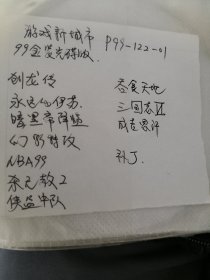 游戏新城市 P99-122-01
99全奖光碟版
剑龙传
永远的伊苏
暗黑帝降临
幻影特攻
NBA99
杀无赦2
侠盗车队
吞食天地
三国志Ⅵ
成吉思汗
补丁